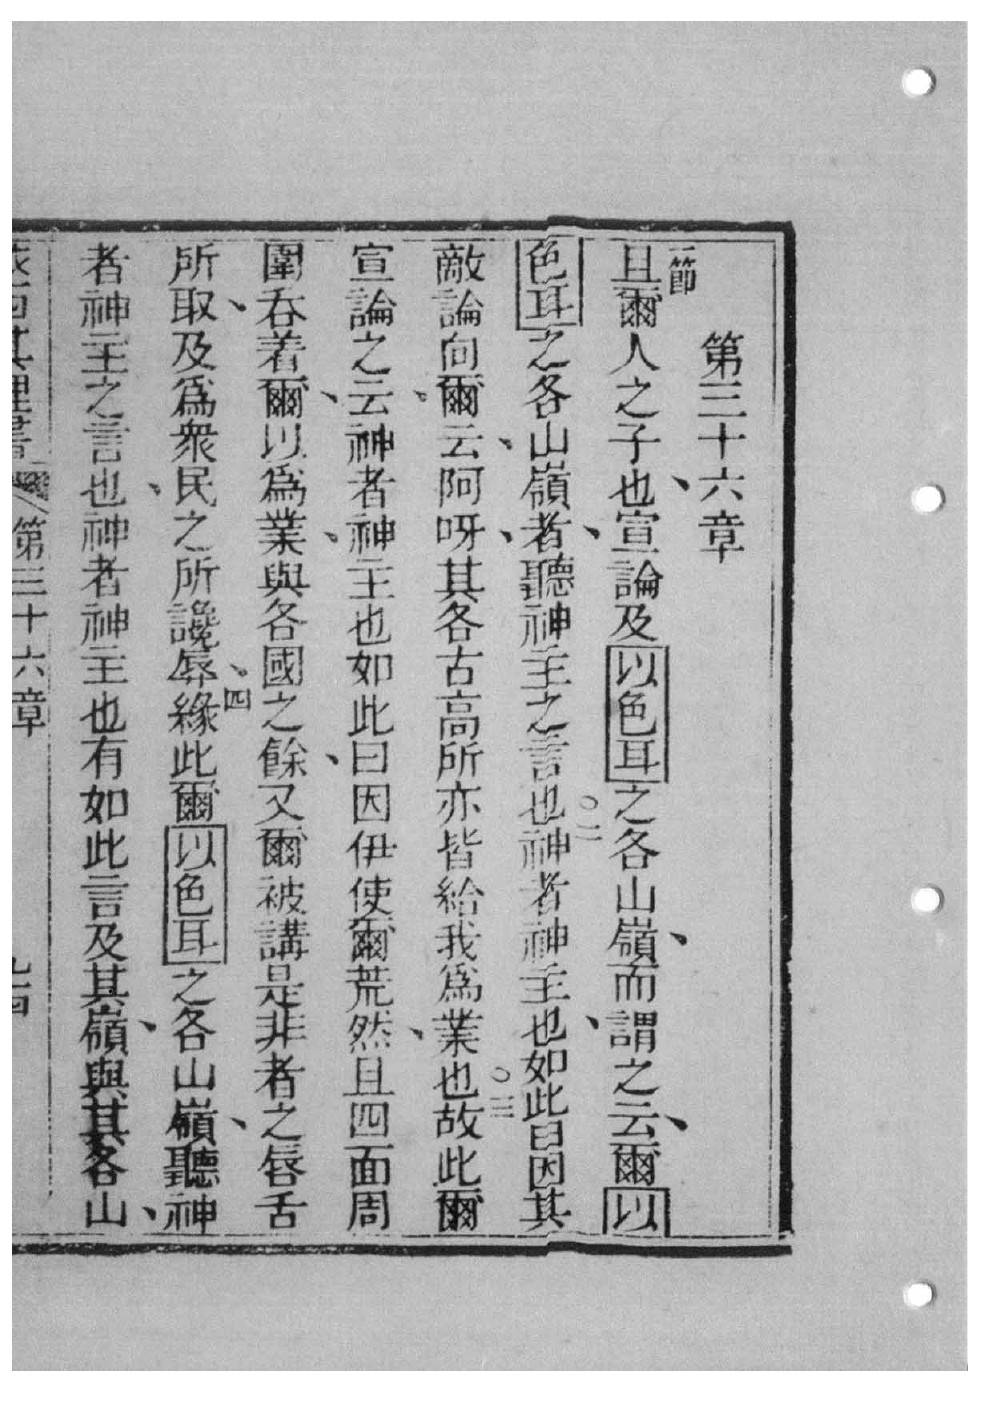 第三十六章
一節
且爾人之子也宣論及以色耳之各山嶺而謂之云爾以
色耳之各山嶺者聽神主之言也○二神者神主也如此曰因其
敵論向爾云阿呀其各古高所亦皆給我為業也○三故此爾
宣論之云神者神主也如此曰因伊使爾荒然且四面周
圍呑着爾以為業與各國之餘又爾被講是非者之唇舌
所取及為衆民之所讒辱四緣此爾以色耳之各山嶺聽神
者神主之言也神者神主也有如此言及其嶺與其各山
書 第三十六章 九四